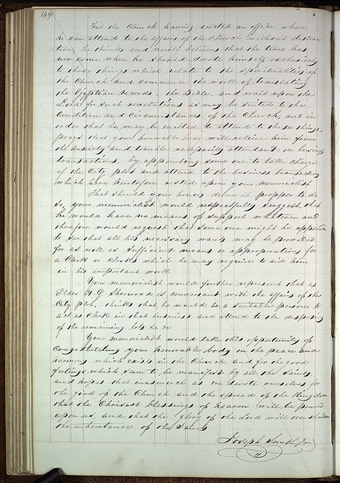 That the Church having erected an office where
he can attend to the affairs of the Church without distrac
tion, he thinks and verily believes that the time has
now come when he should devote himself exclusively
to those things which relate to the spiritualities of
the Church and commence the work of translating
the Egyptian records, the Bible, and wait upon the
Lord for such revelations as may be suited to the
conditions and circumstances of the Church, and in
order that he may be enabled to attend to those things
prays that your honorable body will relieve him from
the anxiety and trouble necessarily attendant on business
transactions, by appointing some one to take charge
of the City plot and attend to the business transactions
which have heretofore rested upon your memorialist
That should your honors deem it proper to do
so, your memorialist would respectfully suggest that
he would have no means of support whatever and
therefore would request that some one might be appointed
to see that all his necessary wants may be provided
for as well as sufficient means or appropriations for
a Clerk or clerks which he may require to aid him
in his important work
Your memorialist would further represent that as
Elder H. G. Sherwood is conversant with the affairs of the
City plot, thinks that he would be a suitable person to
act as Clerk in that business and attend to the disposing
of the remaining lots &c &c
Your memorialist would take this opportunity of
Congratulating your honorable body on the peace and
harmony which exists in the Church and for the good
feelings which seem to be manifest by all the Saints
and hopes that inasmuch as we devote ourselves for
the good of the Church and the spread of the Kingdom
that the Choicest blessings of heaven will be poured
upon us, and that the glory of the Lord will overshadow
the inheritances of the Saints
Joseph Smith Jr